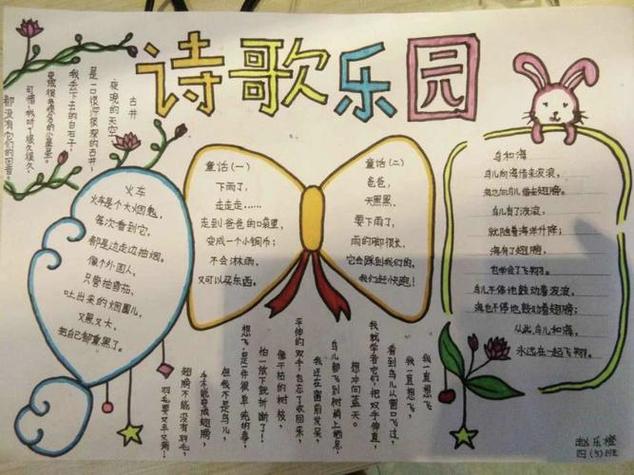 诗歌乐园
古井
夜晚的天空
是一口很深很深的古井,
我丢下去的白石子,
可惜,我叫了很久很久,
都没有它们的回音。
火车
火车是个大烟鬼,
每次看到它,
都是边走边抽烟。
像个外国人,
只管抽雪茄,
吐出来的烟圈儿,
又黑又大,
把自己都熏黑了。
童话(一)
下雨了,
走走走……
走到爸爸的口袋里,
变成一个小铜币;
不会淋雨,
又可以买东西。
童话(二)
爸爸,
天黑黑,
要下雨了,
雨的脚很长,
它会踩到我们的,
我们赶快跑!
鸟和海
鸟儿向海借来波浪,
海也向鸟儿借去翅膀。
鸟儿有了波浪,
就随着海洋升降;
海有了翅膀,
也学会了飞翔。
鸟儿不停地鼓动着波浪,
海也不停地鼓动着翅膀;
从此,鸟儿和海,
永远在一起飞翔。
我一直想飞
我一直想飞,
看到鸟儿从窗口飞过,
我就学着它们,把双手伸直,
想冲向蓝天。
鸟儿都飞到树梢上栖息,
我还在窗前发呆,
平伸的双手,忘了收回来,
像干枯的树枝,
怕一放下就折断了!
想飞,是一件很单纯的事,
但我不是鸟儿,
手不能变成翅膀,
翅膀不能没有羽毛,
羽毛要又丰又满!
赵乐橙
四(3)班